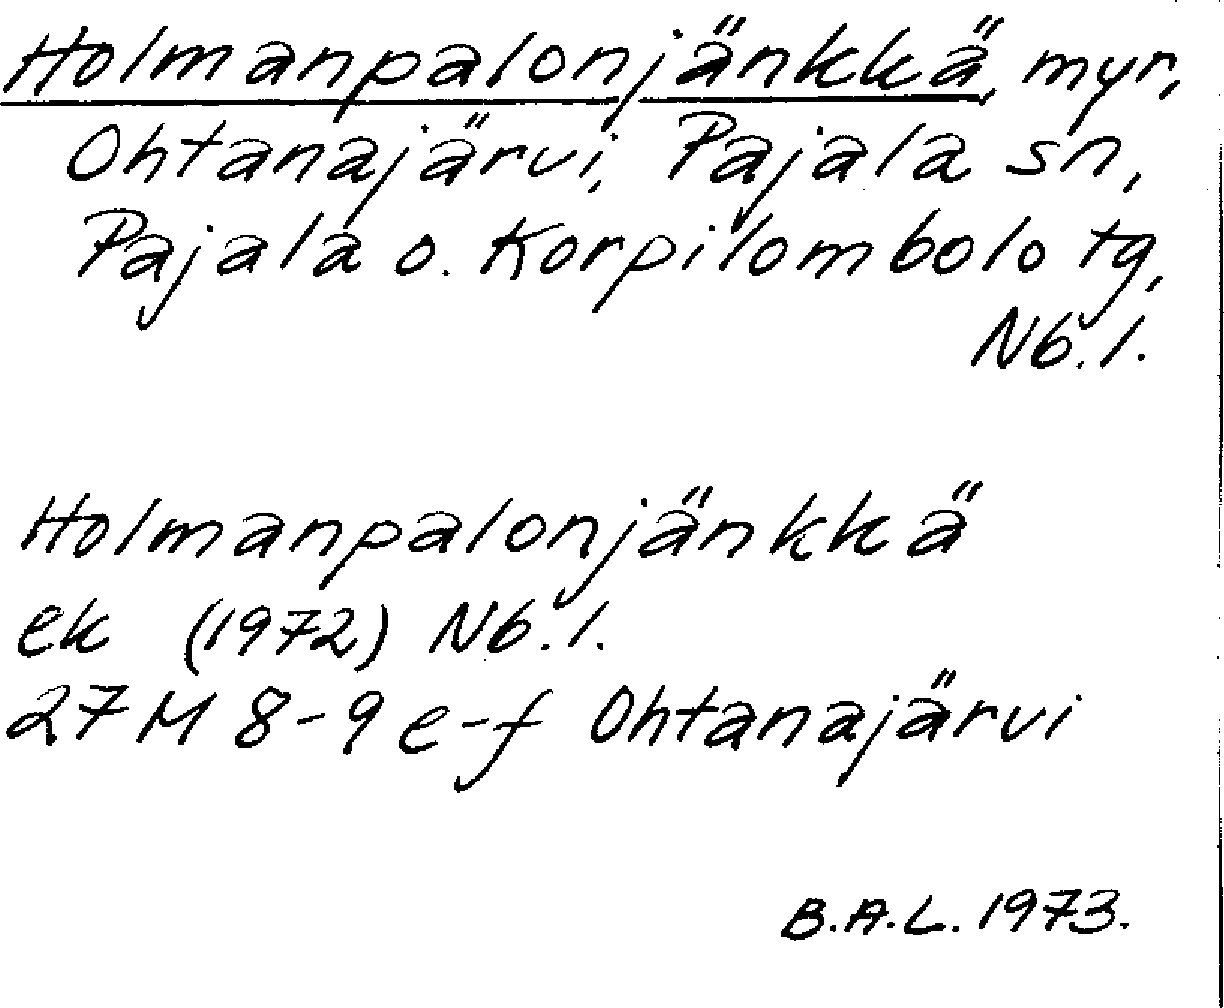 Holmanpalonjänkkä, myr,
Ohtanajärvi, Pajala sn,
Pajala o. Korpilombolo tg,
Nb. l.
Holmanpalonjänkkä
ek (1972) Nb. l.
27 M 8-9 e-f Ohtanajärvi
B.A.L. 1973.